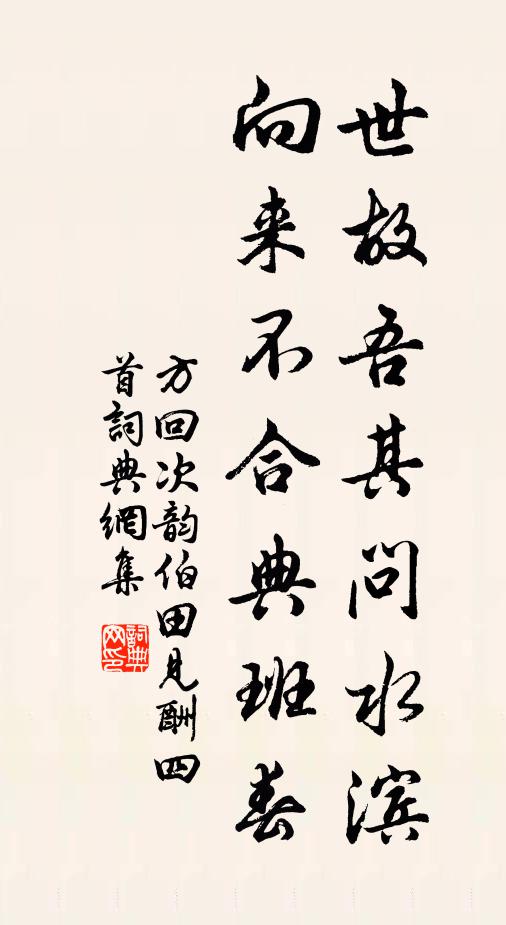 世故吾其问水滨
向来不合典班春
方回次韵伯田见酬四
首詞典網集
詞典
网印